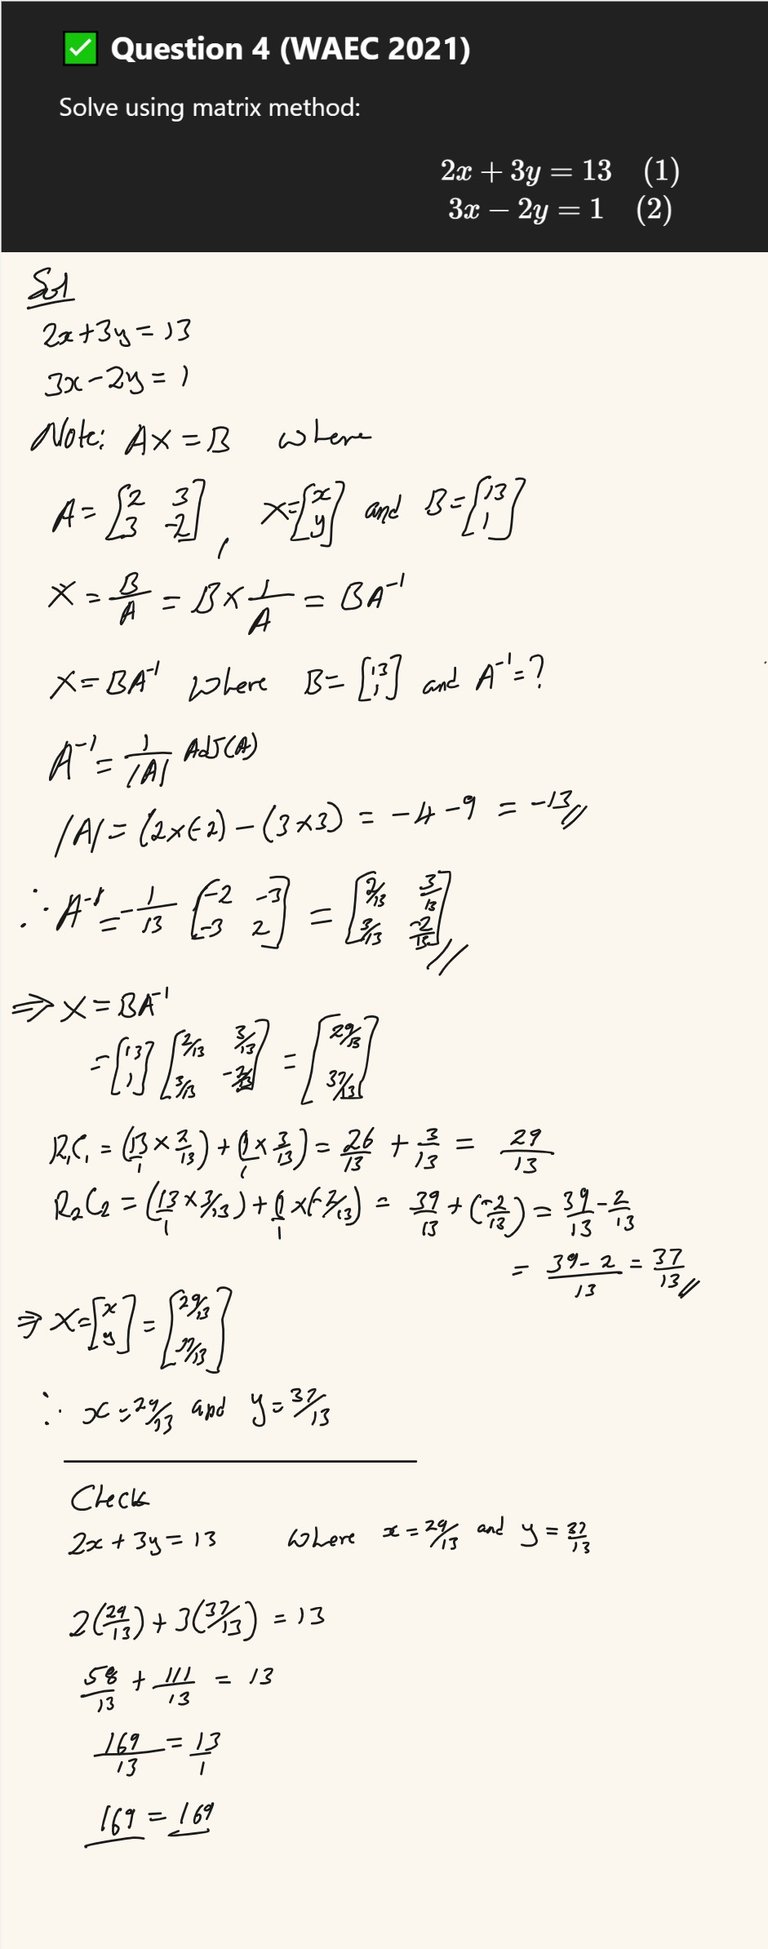 ✅ Question 4 (WAEC 2021)
Solve using matrix method:
2x + 3y = 13 (1)
3x − 2y = 1 (2)
Sol
2x+3y = 13
3x-2y = 1
Note: AX = B where
A = [2 3; 3 -2], X=[x; y] and B=[13; 1]
X = B/A = B × 1/A = BA⁻¹
X = BA⁻¹ where B = [13; 1] and A⁻¹=?
A⁻¹ = 1/|A| Adj(A)
|A| = (2x(-2) - (3x3) = -4 -9 = -13//
∴ A⁻¹ = -1/13 [-2 -3; -3 2] = [2/13 3/13; 3/13 -2/13]//
⇒ X = BA⁻¹
= [13; 1] [2/13 3/13; 3/13 -2/13] = [29/13; 37/13]
R₁C₁ = (13/1 × 2/13) + (1/1 × 3/13) = 26/13 + 3/13 = 29/13
R₂C₂ = (13/1 × 3/13) + (1/1 × (-2/13) = 39/13 + (-2/13) = 39/13 - 2/13
= 39-2/13 = 37/13//
⇒ X = [x; y] = [29/13; 37/13]
∴ x = 29/13 and y = 37/13
Check
2x + 3y = 13 where x = 29/13 and y = 37/13
2(29/13) + 3(37/13) = 13
58/13 + 111/13 = 13
169/13 = 13/1
169 = 169